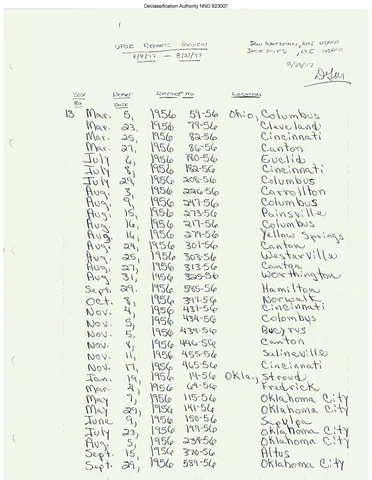 Declassification Authority NND 923007
UFOB REPORTS REVIEW
8/9/77 — 8/23/77
BOX No REPORT DATE REPORT NO LOCATION
13 Mar. 5, 1956 59-56 Ohio, Columbus
Mar. 23, 1956 79-56 Cleveland
Mar. 25, 1956 82-56 Cincinnati
Mar. 27, 1956 86-56 Canton
July 6, 1956 180-56 Euclid
July 8, 1956 182-56 Cincinnati
July 29, 1956 208-56 Columbus
Aug. 3, 1956 226-56 Carrollton
Aug. 9, 1956 247-56 Columbus
Aug. 15, 1956 273-56 Painsville
Aug. 16, 1956 217-56 Columbus
Aug. 16, 1956 279-56 Yellow Springs
Aug. 24, 1956 301-56 Canton
Aug. 25, 1956 303-56 Westerville
Aug. 27, 1956 313-56 Canton
Aug. 31, 1956 325-56 Worthington
Sept. 29, 1956 585-56 Hamilton
Oct. 8, 1956 397-56 Norwalk
Nov. 4, 1956 431-56 Cincinnati
Nov. 5, 1956 434-56 Colombus
Nov. 5, 1956 438-56 Bucyrus
Nov. 8, 1956 446-56 Canton
Nov. 11, 1956 455-56 Salineville
Nov. 17, 1956 465-56 Cincinnati
Jan. 19, 1956 14-56 Oklah, Stroud
Mar. 4, 1956 64-56 Fredrick
May 7, 1956 115-56 Oklahoma City
May 29, 1956 141-56 Oklahoma City
June 9, 1956 150-56 Sapulpa
July 23, 1956 199-56 Oklahoma City
Aug. 5, 1956 234-56 Oklahoma City
Sept. 15, 1956 370-56 Altus
Sept. 29, 1956 589-56 Oklahoma City